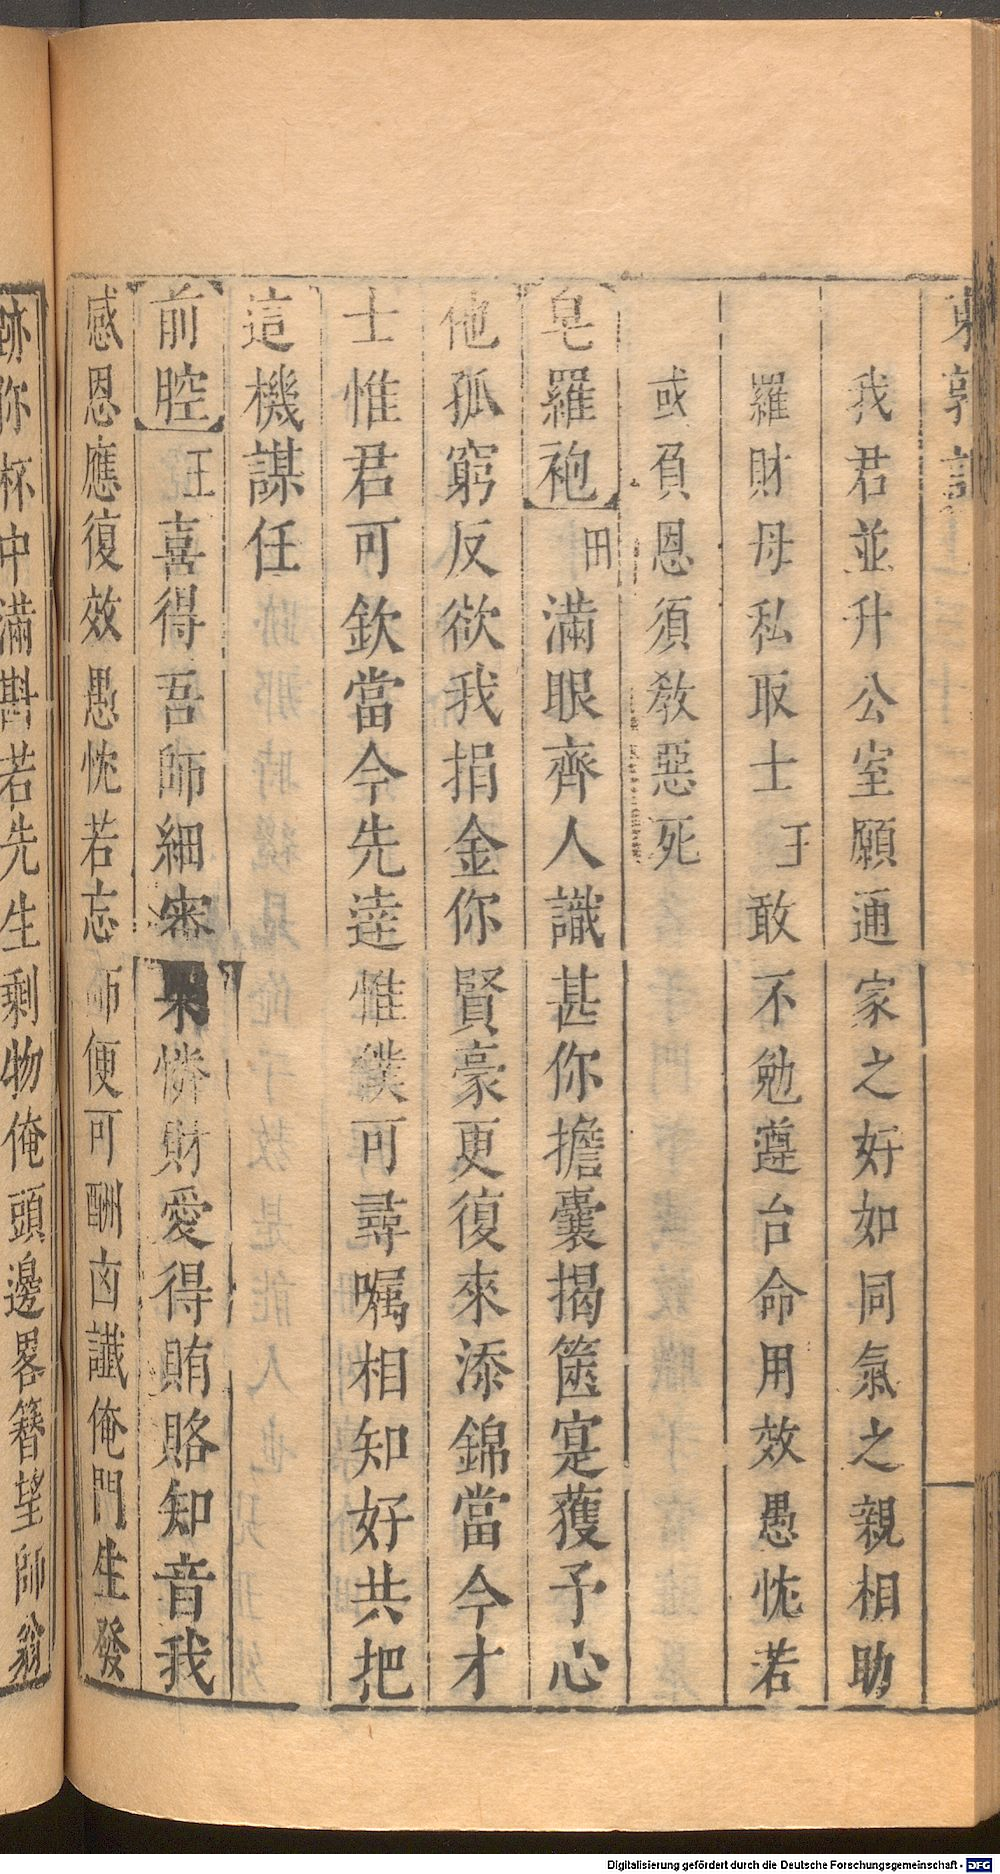 東郭記
我君並升公室願通家之好如同氣之親相助
羅財毋私取士王敢不勉遵台命用效愚忱若
或負恩須教惡死
皂羅袍田滿眼齊人識甚你擔囊揭篋寔獲予心
他孤窮反欲我捐金你賢豪更復來添錦當今才
士惟君可欽當今先達惟僕可尋囑相知好共把
這機謀任
前腔王喜得吾師細審果憐財愛得賄賂知音我
感恩應復效愚忱若忘師便可酬卤讖俺門生發
跡祢杯中滿斟若先生剩物俺頭邊畧簪望師翁
Digitalisierung gefördert durch die Deutsche Forschungsgemeinschaft - DFG